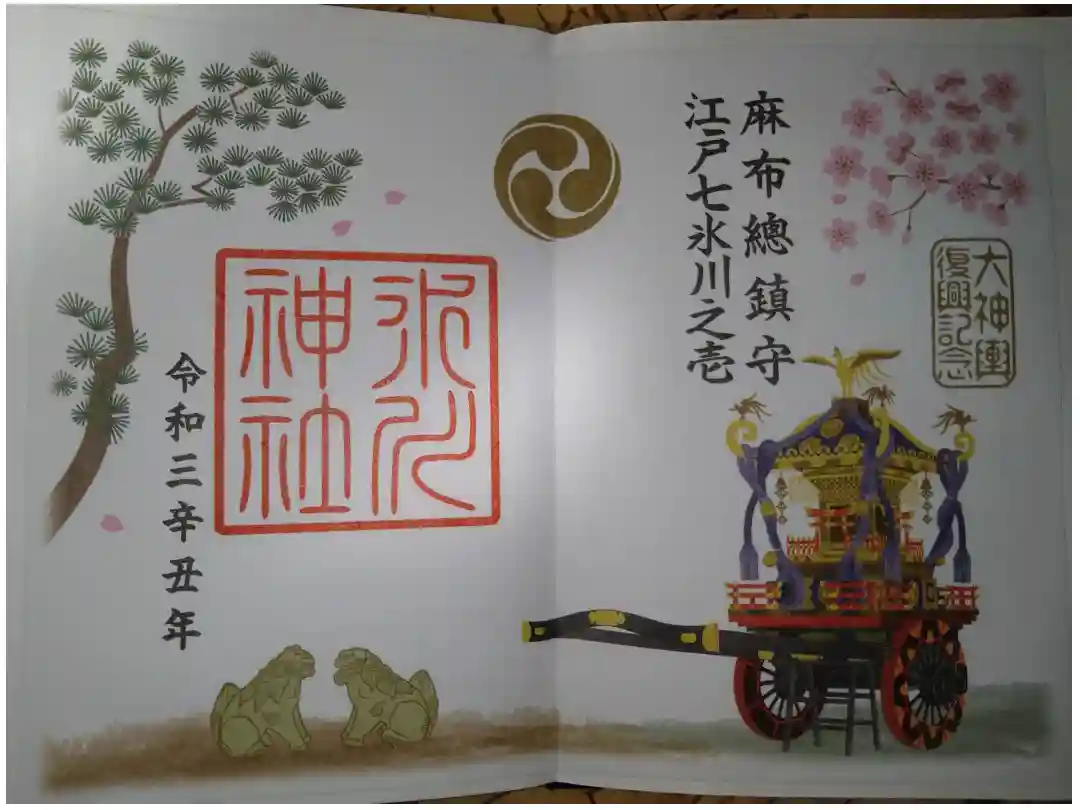 大神輿
復興記念
麻布總鎮守
江戸七氷川之壱
氷川
神社
令和三辛丑年